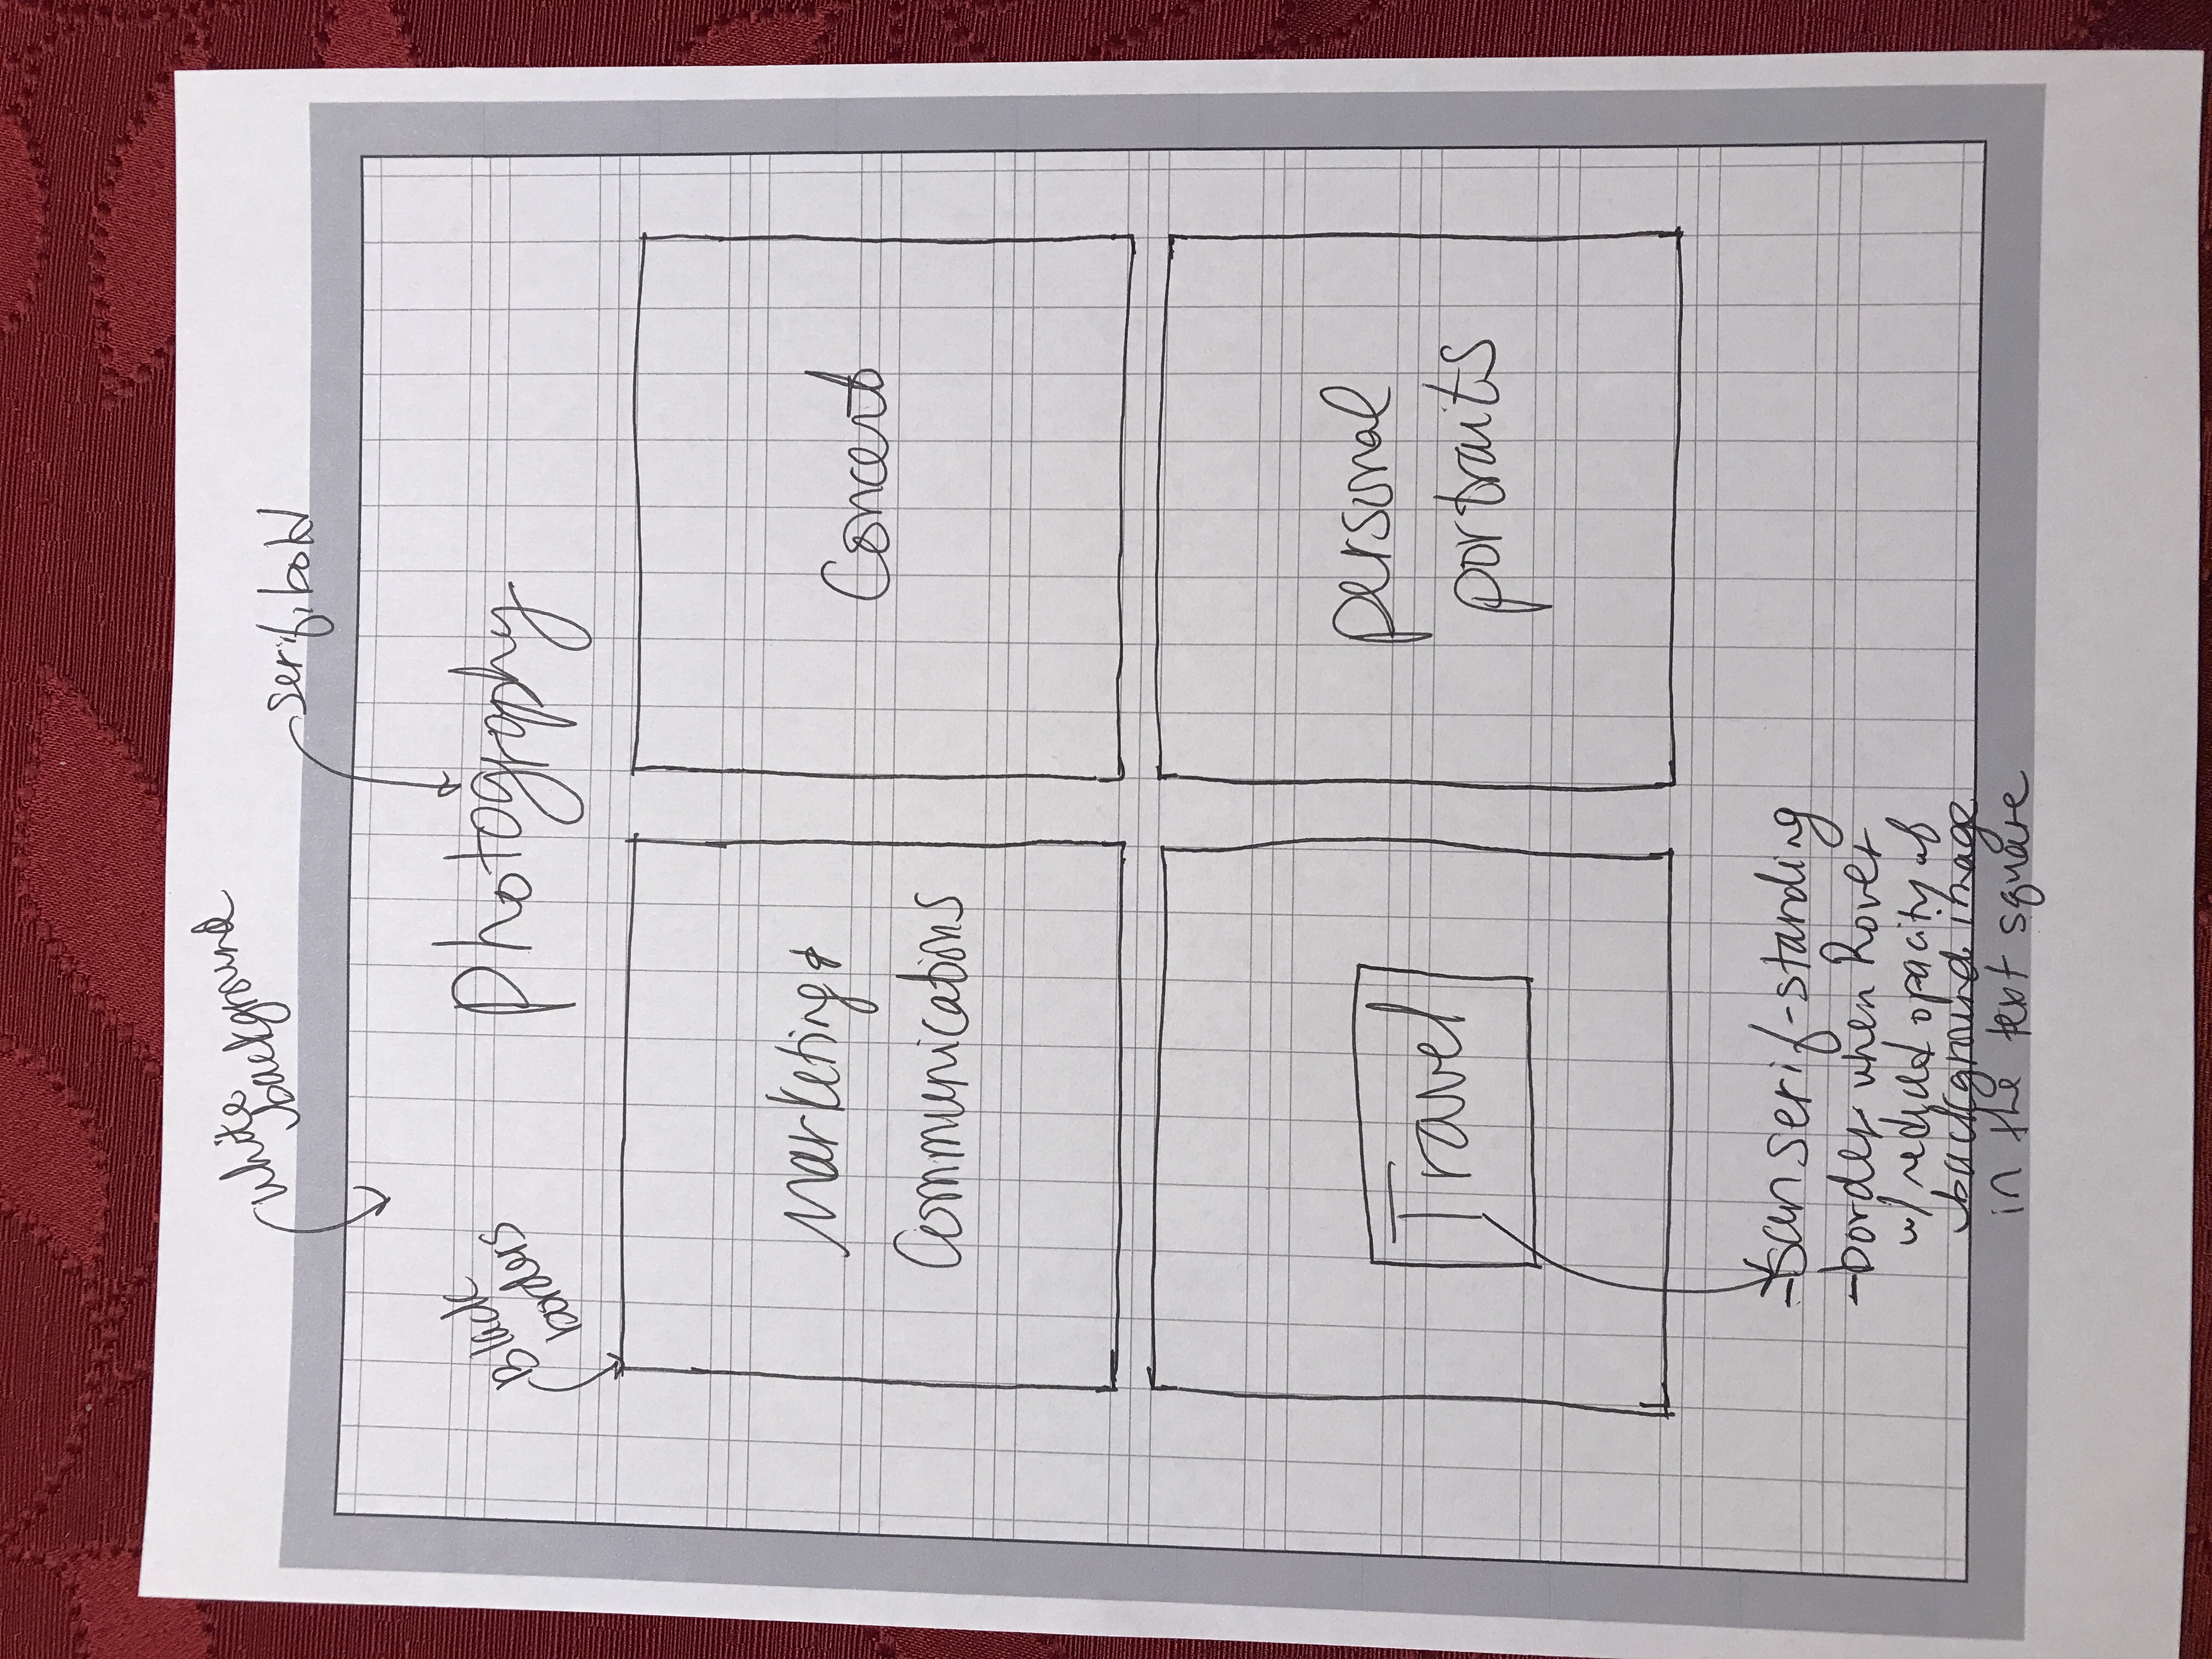 white
background
serif, bold
Black
borders
Photography
Marketing &
Communications
Concert
Travel
personal
portraits
- san serif-standing
- border when Rover
w/ reduced opacity of
background image
in the text square